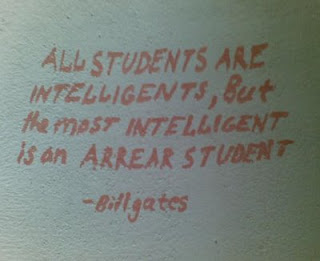 ALL STUDENTS ARE
INTELLIGENTS, But
the most INTELLIGENT
is an ARREAR STUDENT
-Billgates